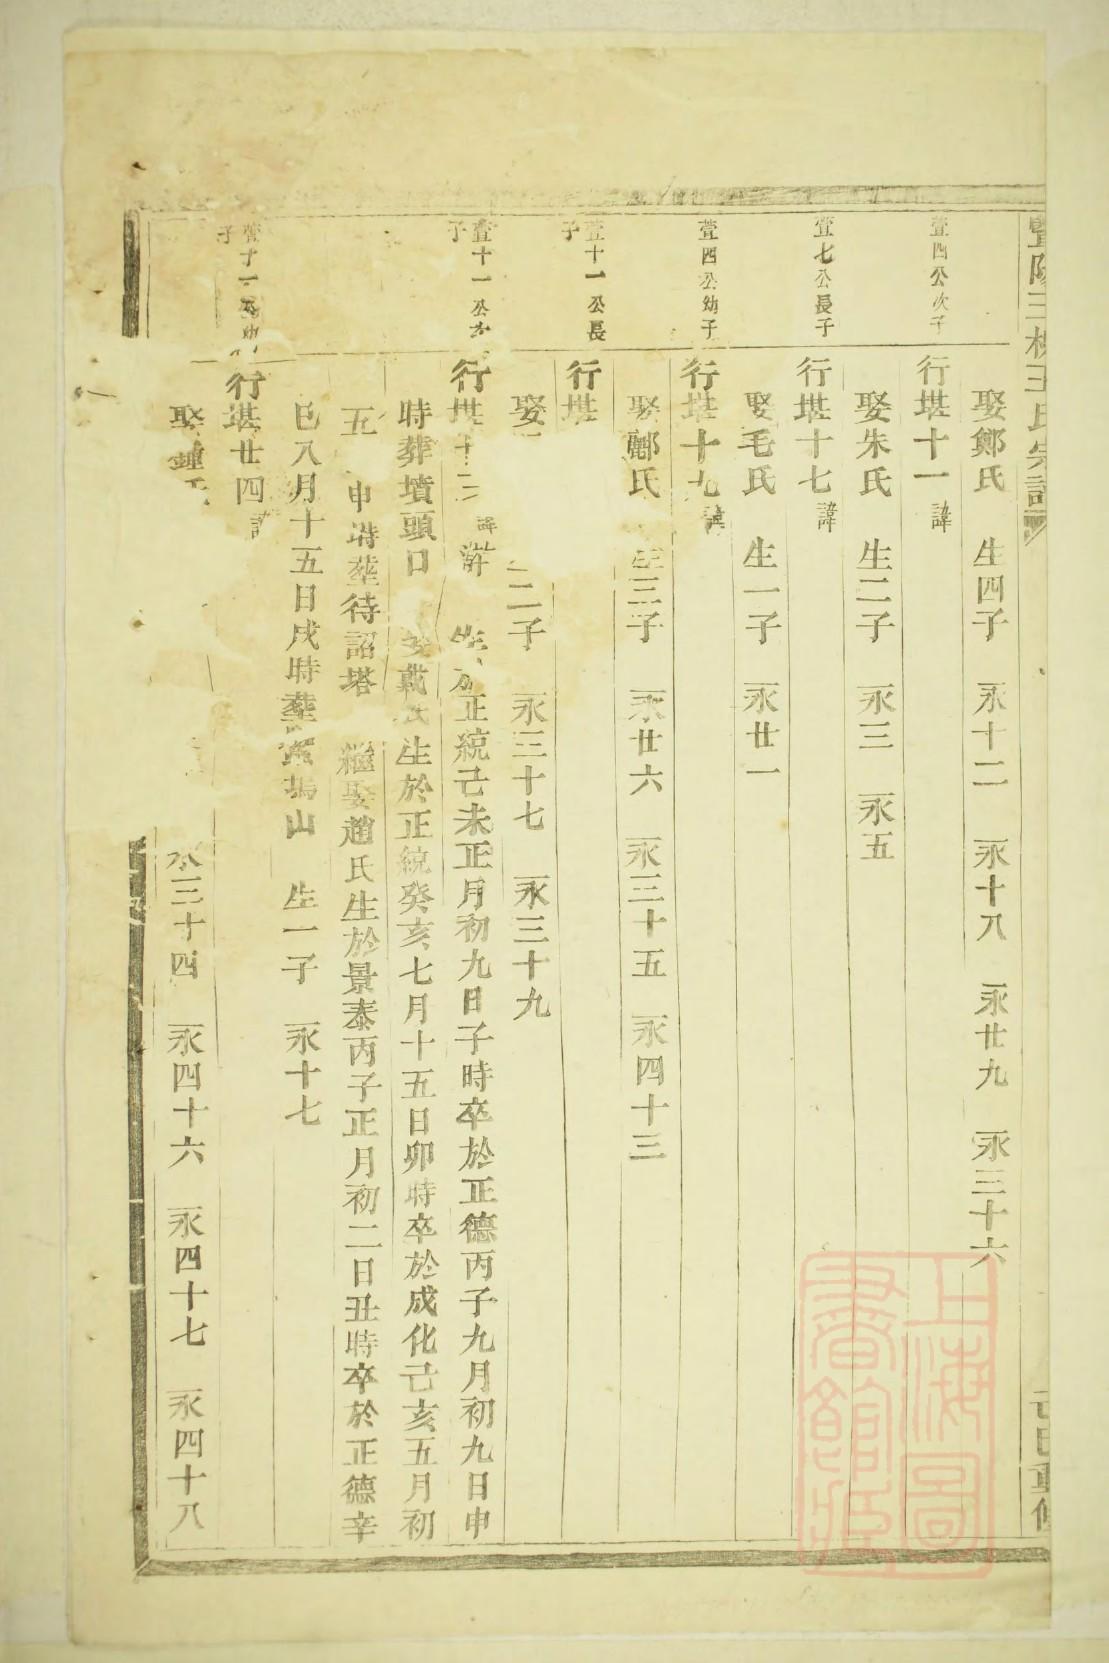 暨陽三枝王氏宗譜
娶鄭氏 生四子 永十二 永十八 永廿九 永三十六
萱四公次子
行堪十一 諱
娶朱氏 生二子 永三 永五
萱七公長子
行堪十七 諱
娶毛氏 生一子 永廿一
萱四公幼子
行堪十九 諱
娶酈氏 生三子 永廿六 永三十五 永四十三
萱十一公長子
行堪
娶 二子 永三十七 永三十九
萱十一公 子
行堪十 諱 生於正統己未正月初九日子時卒於正德丙子九月初九日申
時葬墳頭口 娶戴氏生於正統癸亥七月十五日卯時卒於成化己亥五月初
五 申時葬待詔塔 繼娶趙氏生於景泰丙子正月初二日丑時卒於正德辛
巳八月十五日戌時葬 塢山 生一子 永十七
萱十一公幼子
行堪廿四 諱
娶鍾氏 永三十四 永四十六 永四十七 永四十八
上海圖書館藏